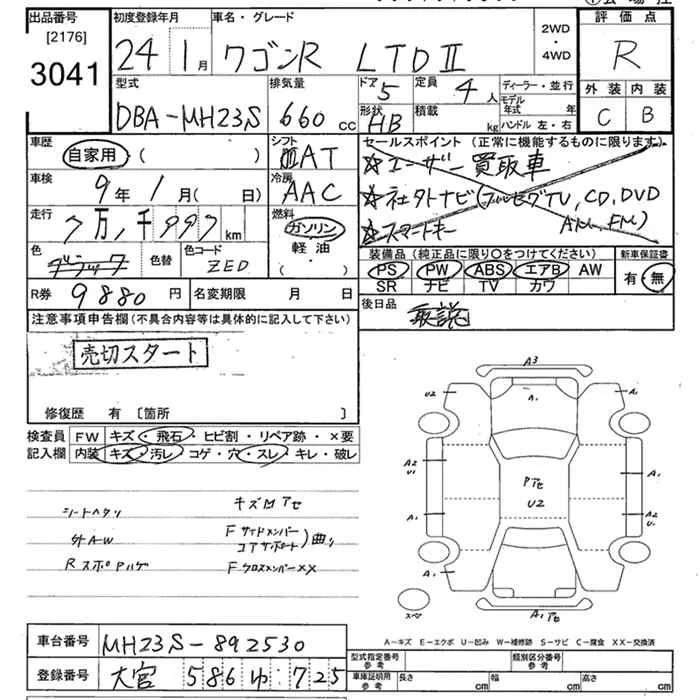 出品番号 初度登録年月 車名・グレード 評価点
[2176]
3041 24 1月 ワゴンR LTDⅡ 2WD・4WD R
型式 排気量 ドア 5 定員 4人 ディーラー・並行 外装 内装
モデル年式 年
DBA-MH23S 660cc 形状 HB 積載 kg ハンドル 左・右 C B
車歴 シフト セールスポイント (正常に機能するものに限ります)
自家用 ( AT ☆ユーザー買取車
車検 冷房 ☆社外ナビ(フルセグTV, CD, DVD
9年1月(日) AAC AM, FM)
走行 燃料 ☆スマートキー
7万,千997km ガソリン 軽油 ( ・ )
色 ブラック 色替 色コード ZED 装備品 (純正品に限り○をつけてください) 新車保証書
PS PW ABS エアB AW 有・無
SR ナビ TV カワ
R券 9880円 名変期限 月 日 後日品
取説
注意事項申告欄(不具合内容等は具体的に記入して下さい)
売切スタート
修復歴 有 [箇所 ]
検査員 FW キズ・飛石・ヒビ割・リペア跡・×要
記入欄 内装 キズ・汚レ コゲ・穴・スレ・キレ・破レ
キズ凹アセ
シートヘタリ
Fサイドメンバー
外AW コアサポート )曲り
RスポPハゲ Fクロスメンバー××
A3
U2 A1 A1
A2 U1 A2 U1
Pアセ U2
A1 A1
A1 A1アセ
スペア
A-キズ E-エクボ U-凹み W-補修跡 S-サビ C-腐食 XX-交換済
車台番号 MH23S-892530 型式指定番号 参考 類別区分番号 参考
登録番号 大宮 586 ゆ 725 車庫証明用 参考 長さ cm 幅 cm 高さ cm